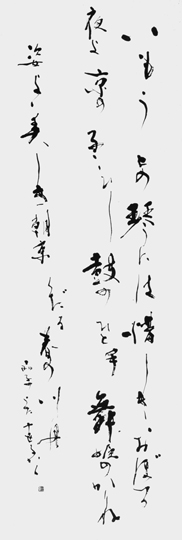 いもうとの琴には惜しきおぼろ
夜よ京の子こひし鼓のひと手 舞姫のかりね
姿よ美しき朝京
くだる春の川舟